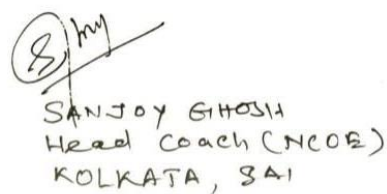 SANJOY GHOSH
Head Coach (NCOE)
KOLKATA, SAI